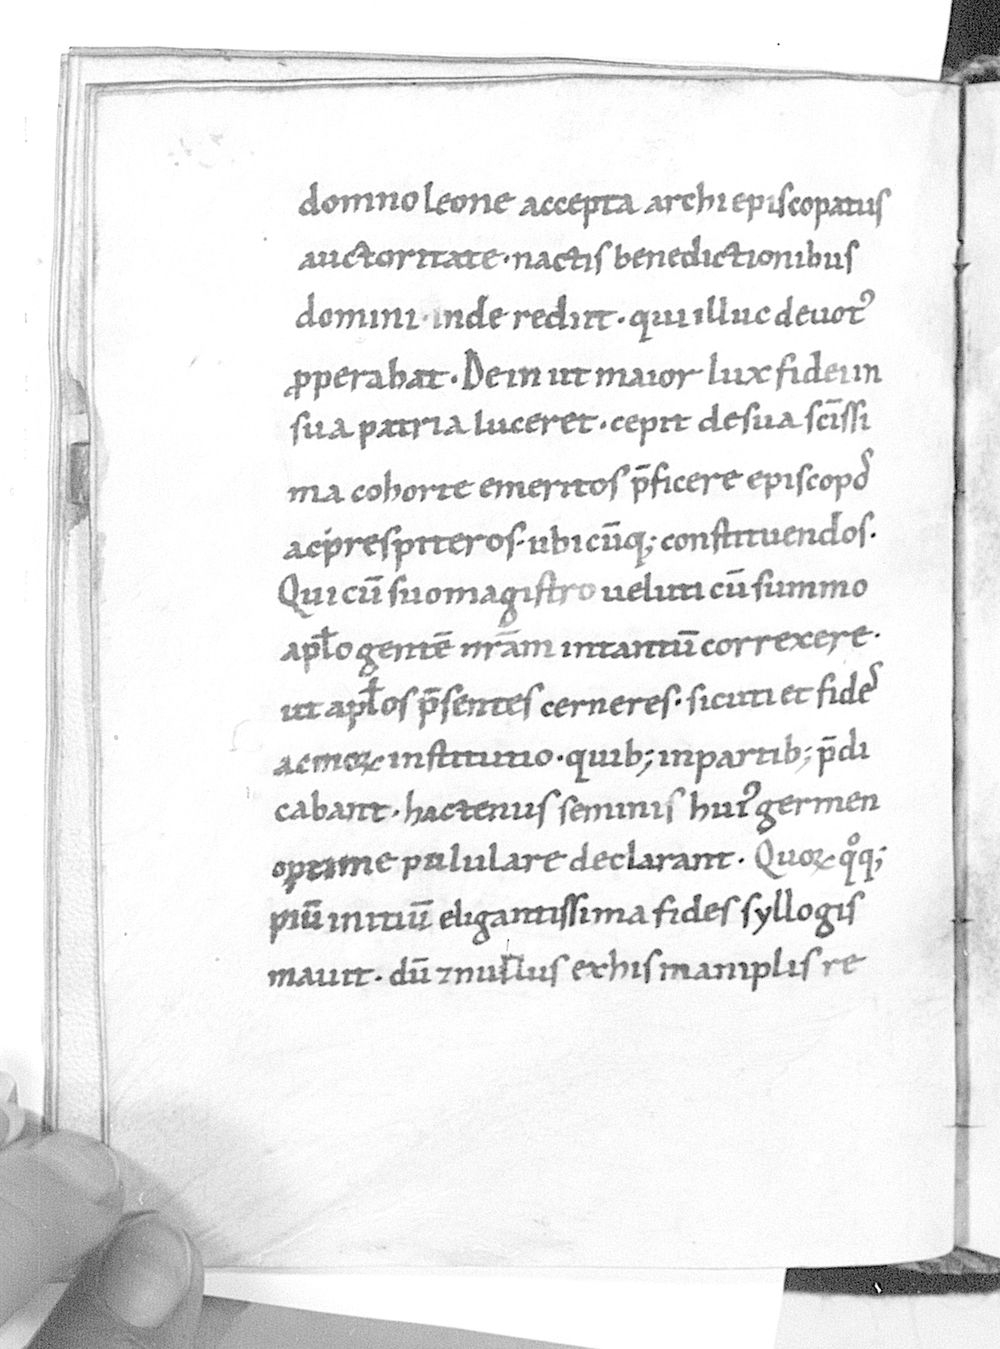 domno leone accepta archiepiscopatus
auctoritate · nactis benedictionibus
domini · inde rediit · qui illuc deuotꝰ
ꝓpperabat · Dein ut maior lux fidei in
sua patria luceret · cepit de sua scīssi
ma cohorte emeritos p̄ficere episcopoſ
ac prespiteros · ubicūq; constituendos ·
Qui cū suo magistro ueluti cū summo
apƚo gentē nr̄am intantū correxere ·
ut apƚos p̄sentes cerneres · sicuti et fideſ
ac moꝝ institutio · quib; in partib; p̄di
cabant · hactenus seminis huiꝰ germen
optime pululare declarant · Quoꝝ qͦq;
piū initiū eligantissima fides syllogis
mauit · dū ⁊ nullus ex his in amplis re